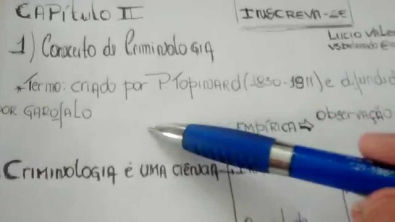 CAPÍTULO II
INSCREVA-SE
1) Conceito de Criminologia
LUCIO VALE
*Termo: criado por P.TOPINARD (1830-1911) e difundid
POR GAROFALO
EMPÍRICA ⇒ Observação
CRIMINOLOGIA é UMA CIÊNCIA